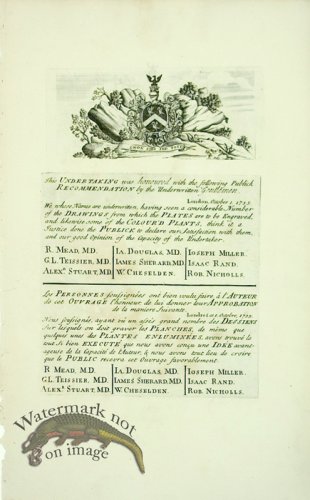 This UNDERTAKING was honoured with the following Publick
RECOMMENDATION by the Underwritten Gentlemen.
London. October 1, 1732.
We whose Names are underwritten, having seen a considerable Number
of the DRAWINGS from which the PLATES are to be Engraved;
and likewise some of the COLOURED PLANTS, think it a
Justice done the PUBLICK to declare our Satisfaction with them,
and our good Opinion of the capacity of the Undertaker.
R. MEAD, MD.
G.L. TEISSIER, MD.
ALEXR. STUART, MD.
IA. DOUGLAS, MD.
IAMES SHERARD, MD.
W. CHESELDEN.
IOSEPH MILLER.
ISAAC RAND.
ROB. NICHOLLS.
Les PERSONNES soussignées ont bien voulu faire à l'AUTEUR
de cet OUVRAGE l'honneur de lui donner leur APPROBATION
de la maniere suivante
Nous soussignés, ayant vû un assés grand nombre des DESSEINS
sur lesquels on doit graver les PLANCHES, de même que
quelques unes des PLANTES ENLUMINEES, avons trouvé le
tout si bien EXECUTÉ que nous avons conçu une IDÉE avant-
ageuse de la Capacité de l'Auteur, & nous avons tout lieu de croire
que le PUBLIC recevra cet Ouvrage favorablement.
R. MEAD, MD.
G.L. TEISSIER, MD.
ALEXR. STUART, MD.
IA. DOUGLAS, MD.
IAMES SHERARD, MD.
W. CHESELDEN.
IOSEPH MILLER.
ISAAC RAND.
ROB. NICHOLLS.
Watermark not
on image